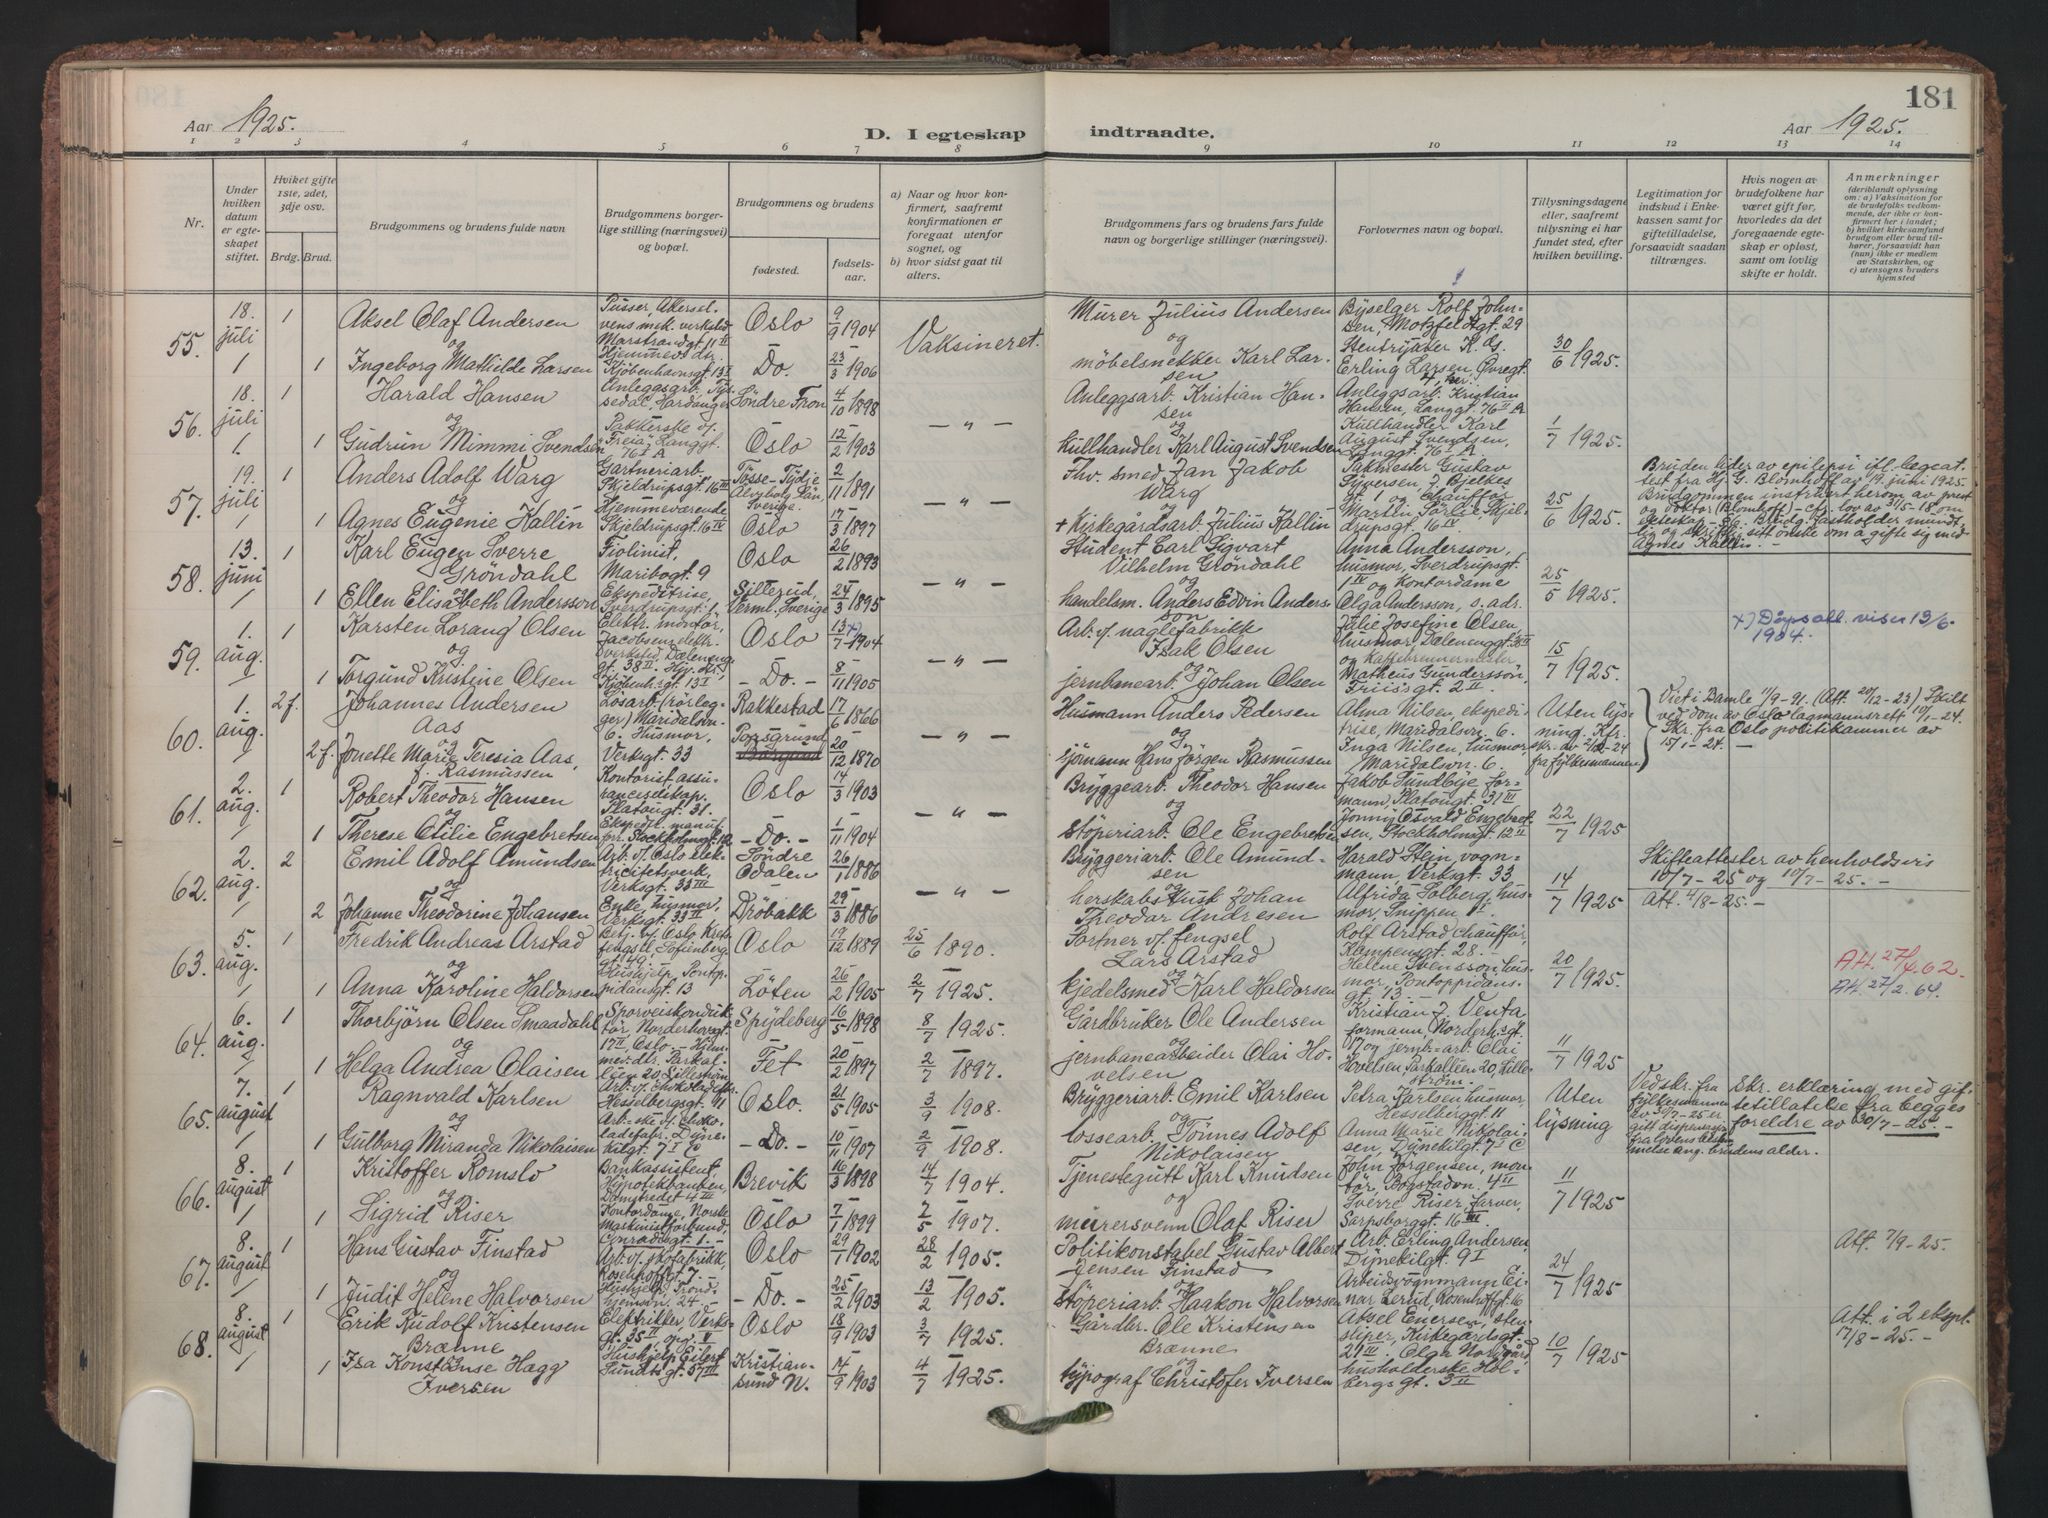 181
Aar 1925.
D. I egteskap indtraadte.
Aar 1925.
1 2 3 4 5 6 7 8 9 10 11 12 13 14
Nr.
Under hvilken datum er egteskapet stiftet.
Hviket gifte 1ste, 2det, 3dje osv.
Brdg. Brud.
Brudgommens og brudens fulde navn
Brudgommens borgerlige stilling (næringsvei) og bopæl.
Brudgommens og brudens
fødested.
fødselsaar.
a) Naar og hvor konfirmert, saafremt konfirmationen er foregaat utenfor sognet, og
b) hvor sidst gaat til alters.
Brudgommens fars og brudens fars fulde navn og borgerlige stillinger (næringsvei).
Forlovernes navn og bopæl.
Tillysningsdagene eller, saafremt tillysning ei har fundet sted, efter hvilken bevilling.
Legitimation for indskud i Enkekassen samt for giftetilladelse, forsaavidt saadan tiltrænges.
Hvis nogen av brudefolkene har været gift før, hvorledes da det foregaaende egteskap er opløst, samt om lovlig skifte er holdt.
Anmerkninger
(deriblandt oplysning om: a) Vaksination for de brudefolks vedkommende, der ikke er konfirmert her i landet; b) hvilket kirkesamfund brudgom eller brud tilhører, forsaavidt han (hun) ikke er medlem av Statskirken, og c) utensogns bruders hjemsted
55. 18. juli 1 Aksel Olaf Andersen
Pusser, Akerselvens mek. verksted Marstrandgt 11 II
Oslo 9/9 1904 Vaksineret.
Murer Julius Andersen
Byselger Rolf Johnsen, Motzfeldtgt. 29
og
1 Ingeborg Mathilde Larsen
Hjemmev. dtr. Kjøbenhavnsgt. 13 I
Do. 23/3 1906
og
møbelsnekker Karl Larsen
Erling Larsen, Øvregt. 4, her.
30/6 1925.
56. 18. juli 1 Harald Hansen
Anleggsarb., Tyssedal, Hardanger
Søndre Fron 4/10 1898 — " —
Anleggsarb. Kristian Hansen
Anleggsarb. Kristian Hansen, Langgt. 76 II A
og
1 Gudrun Mimmi Svendsen
Pakkerske v. "Freia", Langgt. 76 I A
Oslo 12/2 1903
og
kullhandler Karl August Svendsen
Kullhandler Karl August Svendsen, Langgt. 76 I A
1/7 1925.
57. 19. juli 1 Anders Adolf Warg
Gartneriarb. Skjeldrupsgt. 16 III
Tøsse-Tydje Älvsborg Län, Sverige. 2/11 1891 — " —
Fhv. smed Jan Jakob Warg
Pakmester Gustav Syversen, J. Bjelkes gt. 1 og chauffør
og
1 Agnes Eugenie Kallin
Hjemmeværende Skjeldrupsgt. 16 IV
Oslo 17/3 1897
og
+ Kirkegårdsarb. Julius Kallin
Martin Sørlie, Skjeldrupsgt. 16 IV
25/6 1925.
Bruden lider av epilepsi ifl. lægeattest fra Hj. G. Blomhoff av 19. juni 1925. Brudgommen instruert herom av prest og doktor (Blomhoff) - cfr. lov av 31/5-18 om egteskap - Brudg. fastholder mundtlig og skriftlig sitt ønske om å gifte sig med Agnes Kallin. -
58. 13. juni 1 Karl Eugen Sverre Grøndahl
Fiolinist, Maribogt. 9
Oslo 26/2 1893 — " —
Student Carl Sigvart Vilhelm Grøndahl
Anna Andersson, husmor, Sverdrupsgt. 1 IV og Kontordame
og
1 Ellen Elisabeth Andersson
Ekspeditrise, Sverdrupsgt. 1
Sillerud, Verml., Sverige 24/3 1895
og
handelsm. Anders Edvin Andersson
Olga Andersson, s. adr.
25/5 1925.
59. 1. aug. 1 Karsten Lorang Olsen
Elektr. montør, Jacobsens elektr. verksted, Dælenenggt. 38 II.
Oslo 13/7 x) 1904 — " —
Arb. v. naglefabrikk Isak Olsen
Julie Josefine Olsen, husmor, Dælenenggt. 38 II og Kaffebrennermester
x) Dåpsatt. viser 13/6. 1904.
og
1 Torgund Kristine Olsen
Hj. dtr. Kjøbenh.sgt. 13 I
- Do. - 8/11 1905
og
jernbanearb. Johan Olsen
Matheus Gundersson, Friisgt. 2 II.
15/7 1925.
60. 1. aug. 2 f. Johannes Andersen Aas
Løsarb. (rørlegger) Maridalsvn. 6.
Rakkestad 17/6 1866 — " —
Husmann Anders Pedersen
Alma Nilsen, ekspeditrise, Maridalsvn. 6.
og
2 f. Jonette Marie Teresia Aas, f. Rasmussen
Husmor, Verksgt. 33
Porsgrund 20/12 1870
og
sjømann Hans Jørgen Rasmussen
Inga Nilsen, husmor, Maridalsvn. 6.
Uten lysning. Kfr. skr. av 2/12-24 fra fylkesmannen
Viet i Bamle 11/9-91. (Att. 20/12-23) Skilt ved dom av Oslo lagmannsrett 10/1-24. Skr. fra Oslo politikammer av 15/1-24. -
61. 2. aug. 1 Robert Theodor Hansen
Kontorist assuranceselskap, Platousgt. 31.
Oslo 14/3 1903 — " —
Bryggearb. Theodor Hansen
Jakob Sundbye, formann, Platousgt. 31 III
og
1 Therese Otilie Engebretsen
Ekspedit. manuf. forr. Stockholmsgt. 12
- Do. - 1/11 1904
og
støperiarb. Ole Engebretsen
Jonny Osvald Engebretsen, Stockholmsgt. 12 II
22/7 1925
62. 2. aug. 2 Emil Adolf Amundsen
Arb. v. Oslo elektricitetsverk, Verksgt. 33 III
Søndre Odalen 26/1 1886 — " —
Bryggeriarb. Ole Amundsen
Harald Stein, vognmann, Verksgt. 33
og
2 Johanne Theodorine Johansen
Enke, husmor, Verksgt. 33 II
Drøbakk 29/3 1886
herskabskusk Johan Theodor Andresen
Alfrida Solberg, husmor, Snippen 1 I.
14/7 1925
Skifteattester av henholdsvis 10/7-25 og 10/7-25. -
Att. 4/8-25. -
63. 5. aug. 1 Fredrik Andreas Arstad
Betj. v. Oslo Kretsfengsel, Sofienberggt. 49.
Oslo 19/12 1889 25/6 1890.
Portner v. fengsel Lars Arstad
Rolf Arstad chauffør, Kampensgt. 28. -
og
1 Anna Karoline Haldorsen
Hushjelp, Pontoppidansgt. 13
Løten 26/2 1905 2/7 1925.
og
kjedelsmed Karl Haldorsen
Helene Svensson husmor, Pontoppidansgt. 13 -
20/7 1925.
Att. 27/4. 62.
Att. 27/2. 64.
64. 6. aug. 1 Thorbjørn Olsen Smaadahl
Sporveiskonduktør, Norderhovgt. 17 II, Oslo. -
Spydeberg 16/5 1898 8/7 1925.
Gårdbruker Ole Andersen
Kristian J. Venta formann, Norderh.sgt. 17 og jernb.-arb. Olai
og
1 Helga Andrea Olaisen
Hjemmev. dtr. Parkalléen 20, Lillestrøm
Fet 20/2 1897 2/7 1897.
og
jernbanearbeider Olai Hovelsen
Hovelsen, Parkalléen 20, Lillestrøm.
11/7 1925
65. 7. august 1 Ragnvald Karlsen
Arb. v. chokoladefbr. Hesselbergsgt. 11
Oslo. 21/5 1905 3/9 1908.
Bryggeriarb. Emil Karlsen
Petra Karlsen husmor, Hesselberggt. 11
og
1 Gulborg Miranda Nikolaisen
Arb.-ske v. chokoladefabr. Dynekilgt. 7 I C
- Do. - 10/11 1907 2/9 1908.
og
lossearb. Tønnes Adolf Nikolaisen
Anna Marie Nikolaisen, Dynekilgt. 7 I C
Uten lysning
Ved skr. fra fylkesmannen av 30/7-25 er gitt dispensasjon fra lovens bestemmelse ang. brudens alder.
Skr. erklæring med giftetillatelse fra begges foreldre av 30/7-25 -
66. 8. august 1 Kristoffer Romslo
Bankassistent Hypotekbanken, Damstredet 4 III
Brevik 16/3 1898 14/7 1904.
Tjenestegutt Karl Knudsen
John Jørgensen, montør, Bogstadvn. 4 II
og
1 Sigrid Riser
Kontordame, Norske Maskinistforbund, Conradisgt. 1. -
Oslo 7/1 1899 7/5 1907.
og
murersvenn Olaf Riser
Sverre Riser, farver, Sarpsborggt. 16 III
11/7 1925
67. 8. august 1 Hans Gustav Finstad
Arb. v. skofabrikk, Rosenhoffgt. 7.
Oslo 29/1 1902 28/2 1905.
Politikonstabel Gustav Albert Jensen Finstad
Arb. Erling Andersen, Dynekilgt. 9 I
Att. 7/9-25.
og
1 Judit Helene Halvorsen
Hushjelp, Trondhjemsvn. 24 -
- Do. - 25/2 1903 13/2 1905.
og
støperiarb. Haakon Halvorsen
Arbeidsvognmann Einar Lerud, Rosenhoffgt. 16
24/7 1925
68. 8. august 1 Erik Rudolf Kristensen Brænne
Elektriker, Verksgt. 35 II opg. V
Oslo 18/9 1903 3/7 1925.
Gårdbr. Ole Kristensen Brænne
Aksel Enersen, stensliper, Kirkegårdsgt. 21 III.
Att. i 2 ekspl. 17/8-25. -
og
1 Isa Konstanse Hagg Iversen
Hushjelp Eilert Sundtsgt. 57 III
Kristiansund N. 14/9 1903 4/7 1925.
og
typograf Christofer Iversen
Olga Nordgård husholderske Holbergsgt. 3 II
10/7 1925